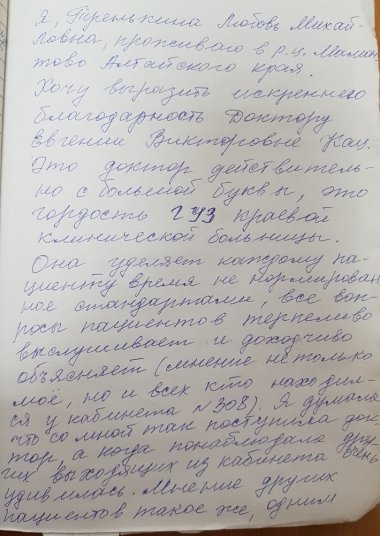 Я, Тренькина Любовь Михай-
ловна, проживаю в р.ц. Мамон-
тово Алтайского края.
Хочу выразить искреннюю
благодарность Доктору
Евгении Викторовне Кац.
Это доктор действитель-
но с большой буквы, это
гордость ГУЗ краевой
клинической больницы.
Она уделяет каждому па-
циенту время не нормирован
ное стандартами, все воп-
росы пациентов терпеливо
выслушивает и доходчиво
объясняет (мнение не только
моё, но и всех кто находил-
ся у кабинета №308). Я думала
что со мной так поступила док-
тор, а когда понаблюдала дру
гих выходящих из кабинета очень
удивилась. Мнение других
пациентов такое же, одним